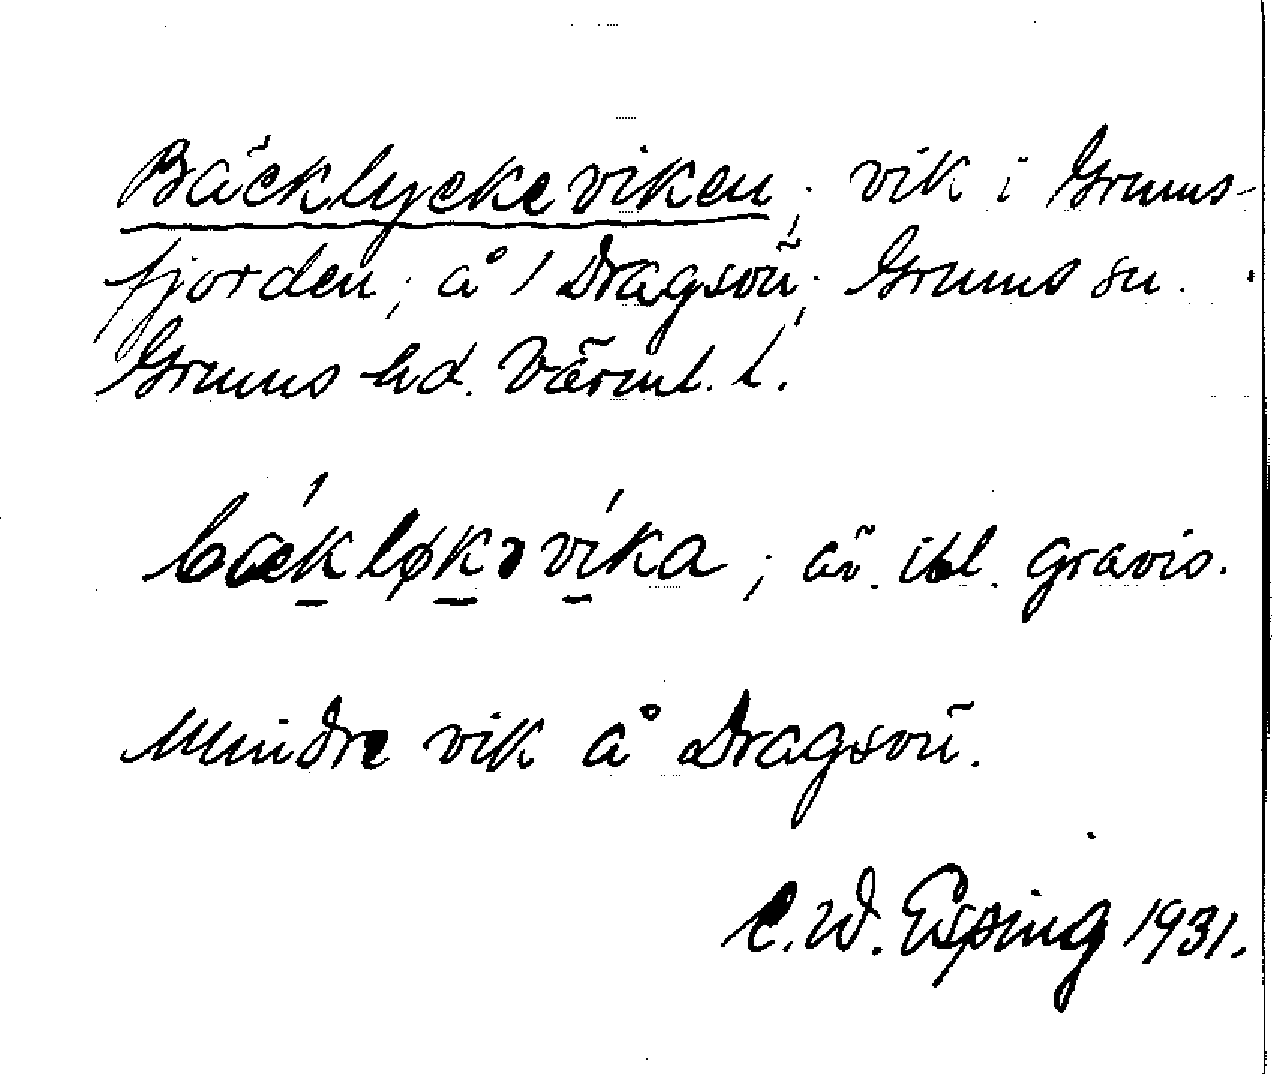 Bäcklyckeviken; vik i Grums-
fjorden; å / Dragsön; Grums sn.
Grums hd. Värml. l.
bækløkəvíka; äv. ibl. gravis.
Mindre vik å Dragsön.
C. W. Esping 1931.